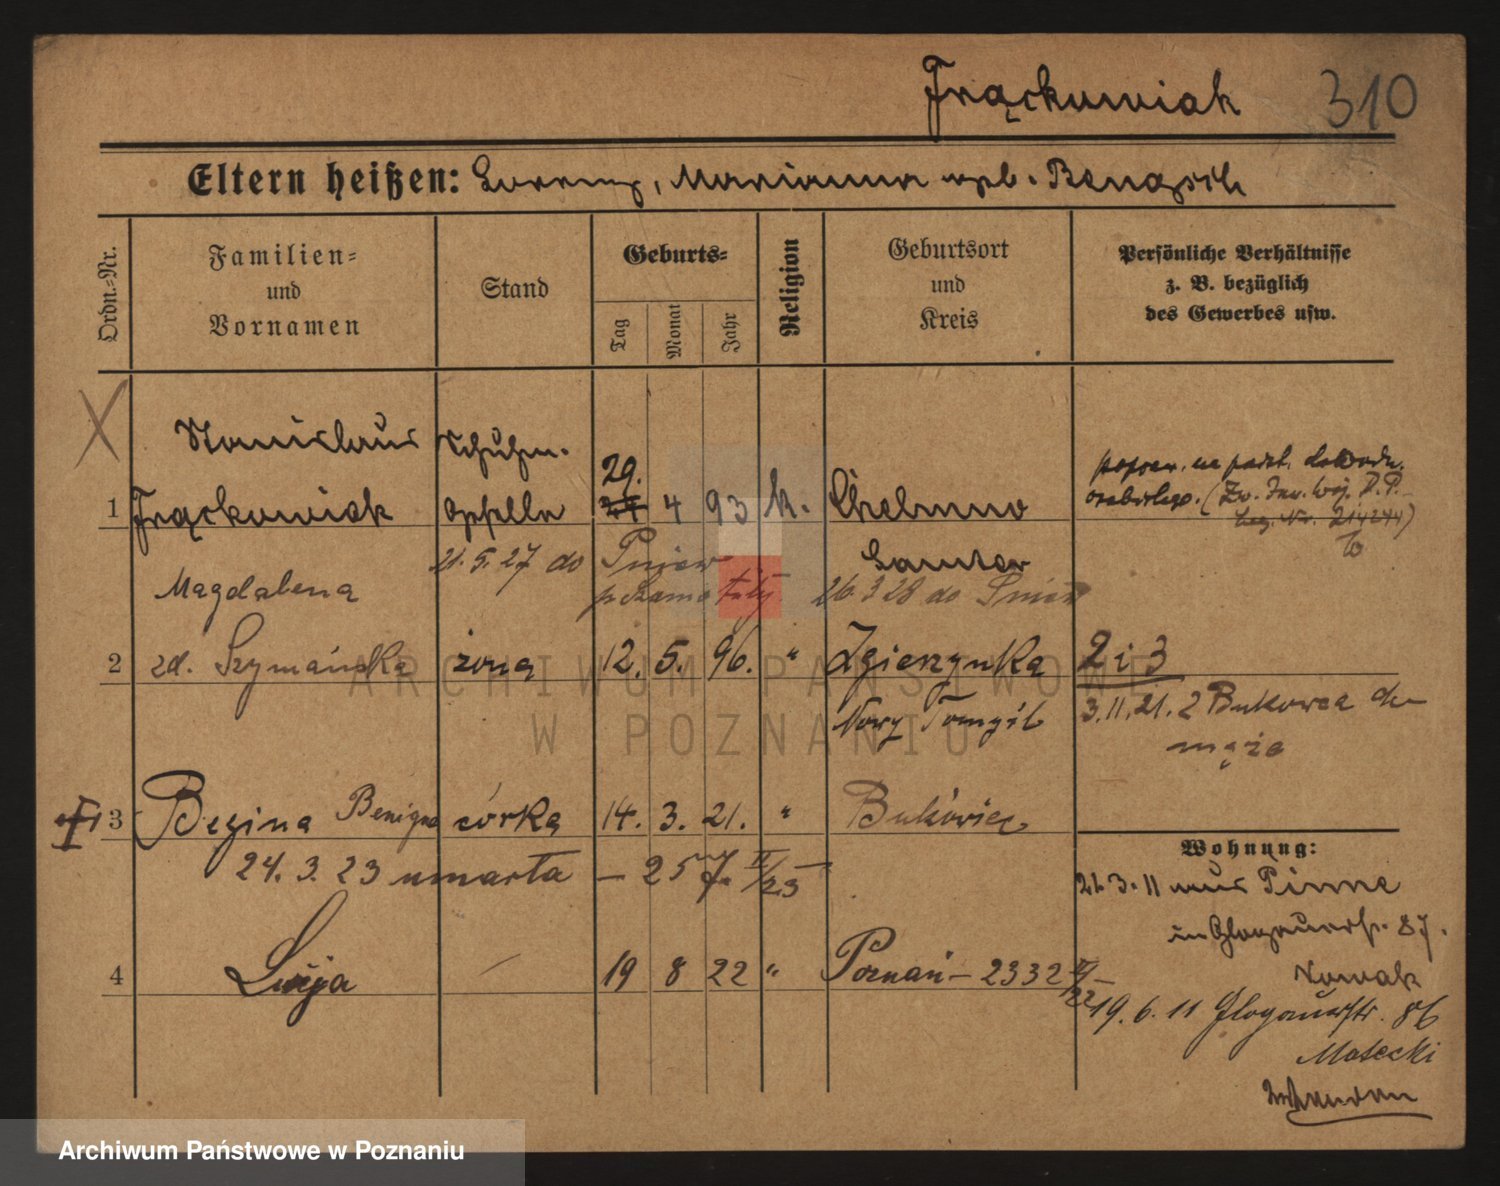 Frąckowiak 310
Eltern heißen: Lorenz, Marianna geb. Benasch
Ordn.-Nr.
Familien-
und
Vornamen
Stand
Geburts-
Tag
Monat
Jahr
Religion
Geburtsort
und
Kreis
Persönliche Verhältnisse
z. B. bezüglich
des Gewerbes usw.
Stanislaus Schuhm.
1 Frąckowiak 29. 4 93 k. Chelmno
osobistego. (
Leg. Nr. 214244)
21.5.27 do Pniew Samter
p Szamotuły 26.3 28 do Pniew
Magdalena
2 zd. Szymańska żona 12. 5. 96. " Zgierzynka 2 i 3
Nowy Tomyśl 3.11.21. z Bukowca do
męża
3 Regina Benigna córka 14. 3. 21. " Bukowiec
24. 3. 23 umarła – 257 II/23
Wohnung:
21.3.11 aus Pinne
in Glogauerstr. 87.
Nowak
4 Lucja 19 8 22 " Poznań – 2332
19. 6. 11 Glogauerstr. 86
Matecki
ARCHIWUM PAŃSTWOWE
W POZNANIU
Archiwum Państwowe w Poznaniu